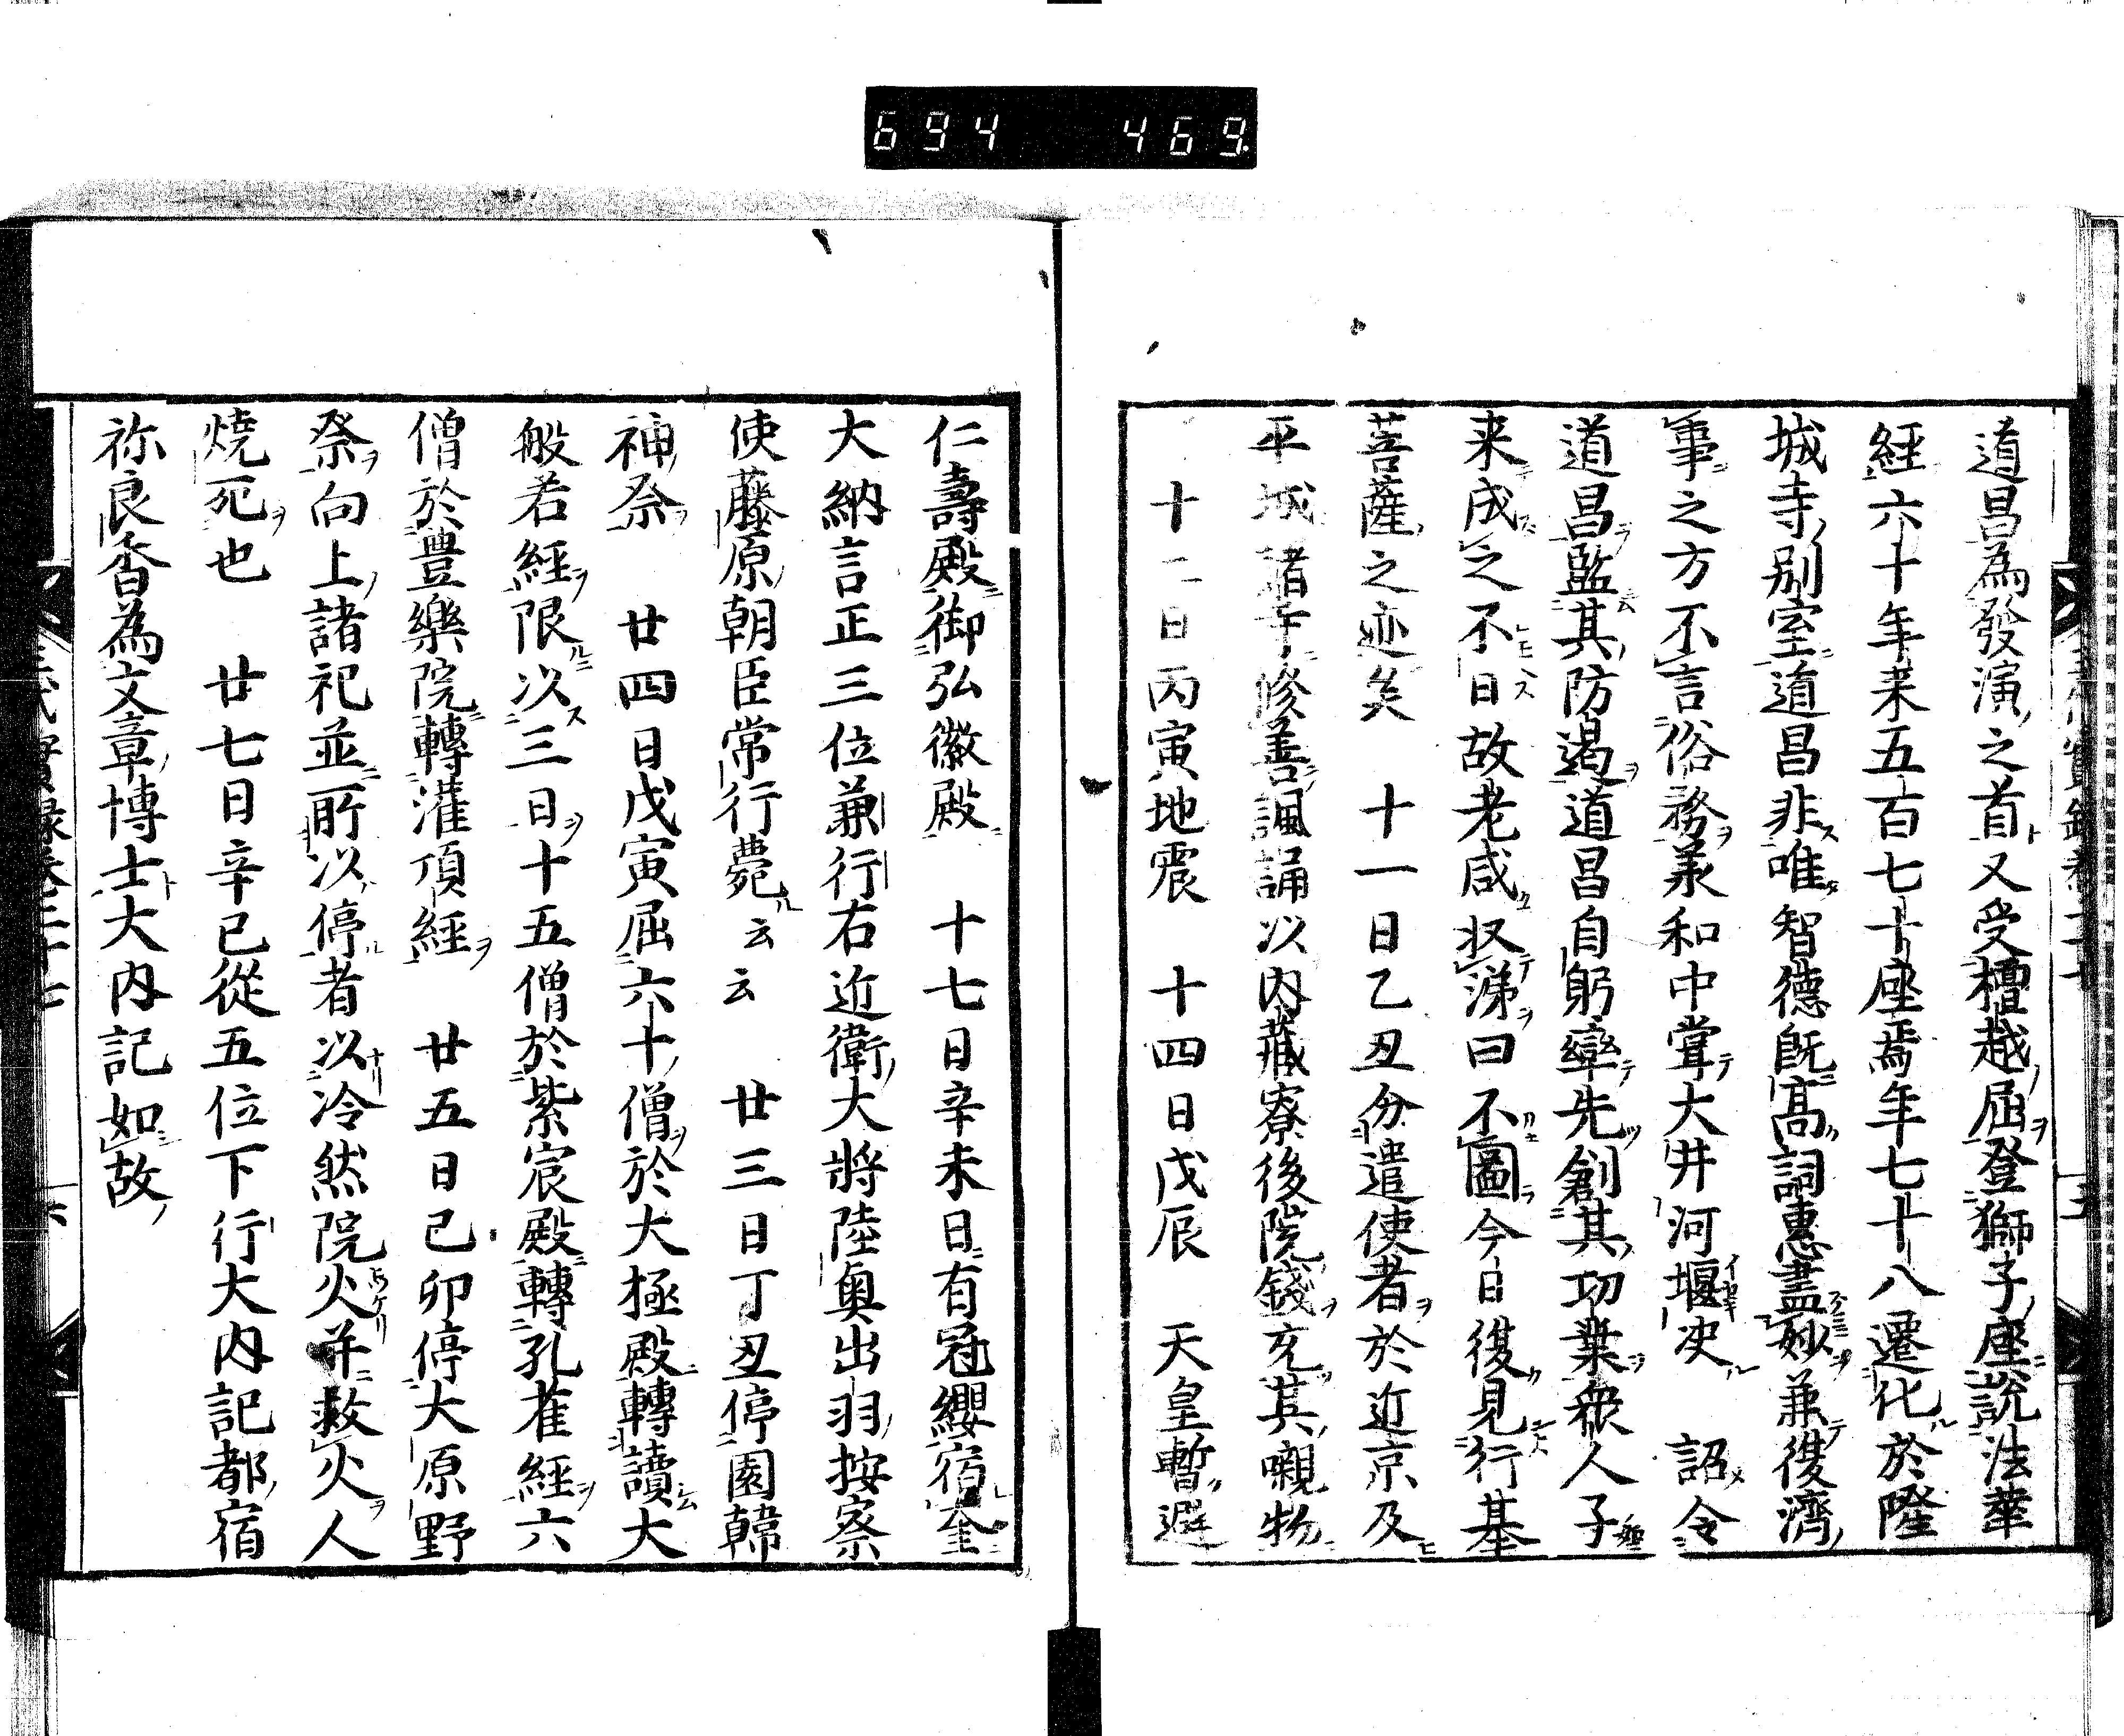 694 469
道昌為發演之首又受檀越屈登獅子座說法華
經六十年来五百七十座焉年七十八遷化於隆
城寺別室道昌非唯智德旣高詞惠盡妙兼復濟
事之方不言俗務羕和中甞大井河堰决 詔令
道昌監其防遏道昌自躬率先創其功業衆人子
来成之不日故老咸収涕曰不圖今日復見行基
菩薩之迹矣 十一日乙丑分遣使者於近京及
平城諸寺修善諷誦以内藏寮後院錢充其嚫物
十二日丙寅地震 十四日戊辰 天皇暫避
仁壽殿御弘徽殿 十七日辛未日有冠纓宿奎
大納言正三位兼行右近衛大將陸奥出羽按察
使藤原朝臣常行薨云云 廿三日丁丑停園韓
神祭 廿四日戊寅屈六十僧於大極殿轉讀大
般若經限以三日十五僧於紫宸殿轉孔雀經六
僧於豊樂院轉灌頂經 廿五日己卯停大原野
祭向上諸祀並所以停者以冷然院火并救火人
燒死也 廿七日辛已從五位下行大内記都宿
祢良香為文章博士大内記如故
三代實録卷二十七 六